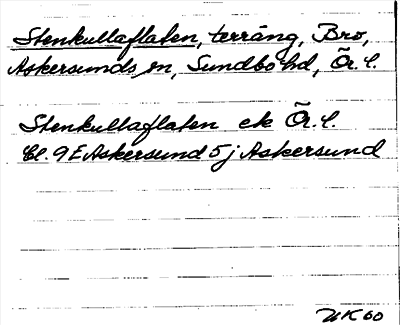 Stenkullaflaten, terräng, Bro,
Askersunds sn, Sundbo hd, Ör. l.
Stenkullaflaten ek Ör. l.
Bl. 9E Askersund 5j Askersund
UK 60